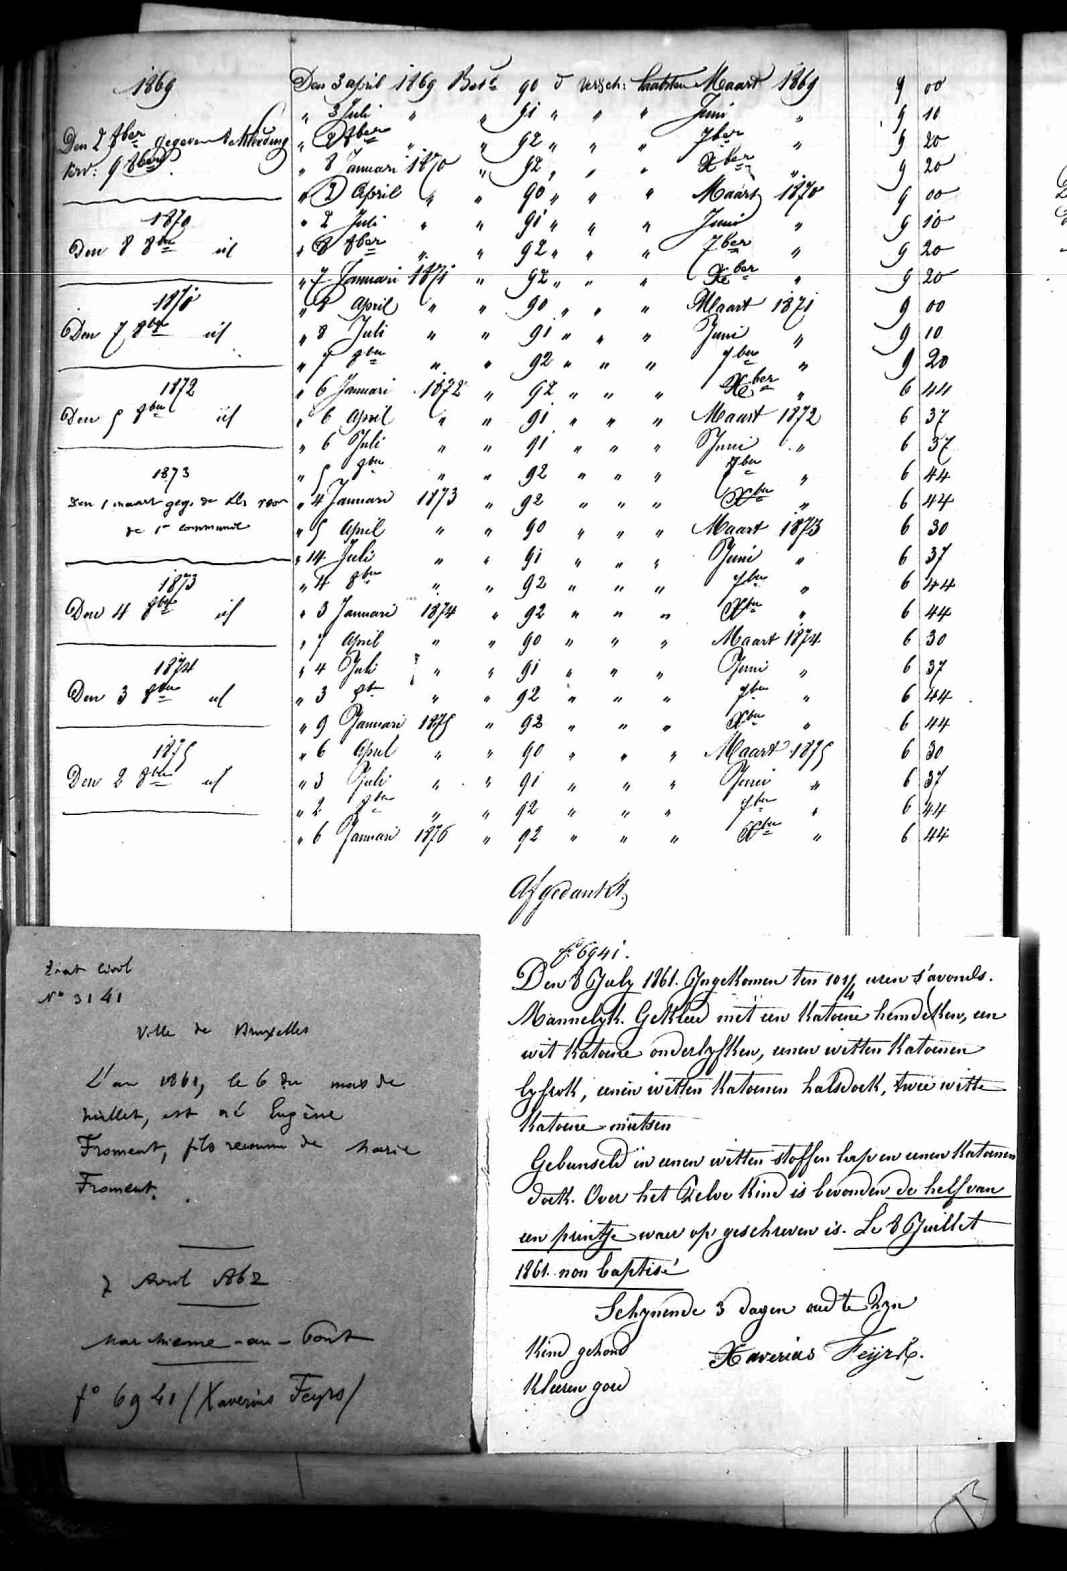 1869
Den 2 8ber gegeven kleeding
1870
Den 8 8bre id
Den 7 8bre id
1872
Den 5 8bre id
1873
Den 1 maart geg. de
de 1e communie
1873
Den 4 8bre id
1874
Den 3 8bre id
1875
Den 2 8bre id
Den 3 april 1869 Betd 90 d versch: laatsten Maart 1869 9 00
" 3 Juli " " 91 " " " Juni " 9 10
" 2 8ber " " 92 " " " 7ber " 9 20
" 8 Januari 1870 " 92 " " " Xber " 9 20
" 2 April " " 90 " " " Maart 1870 9 00
" 2 Juli " " 91 " " " Juni " 9 10
" 8 8ber " " 92 " " " 7ber " 9 20
" 7 Januari 1871 " 92 " " " Xber " 9 20
" 8 April " " 90 " " " Maart 1871 9 00
" 8 Juli " " 91 " " " Juni " 9 10
" 7 8bre " " 92 " " " 7bre " 9 20
" 6 Januari 1872 " 92 " " " Xber " 6 44
" 6 April " " 91 " " " Maart 1872 6 37
" 6 Juli " " 91 " " " Juni " 6 37
" 5 8bre " " 92 " " " 7bre " 6 44
" 4 Januari 1873 " 92 " " " Xbre " 6 44
" 5 April " " 90 " " " Maart 1873 6 30
" 14 Juli " " 91 " " " Juni " 6 37
" 4 8bre " " 92 " " " 7bre " 6 44
" 3 Januari 1874 " 92 " " " Xbre " 6 44
" 7 April " " 90 " " " Maart 1874 6 30
" 4 Juli " " 91 " " " Juni " 6 37
" 3 8bre " " 92 " " " 7bre " 6 44
" 9 Januari 1875 " 92 " " " Xbre " 6 44
" 6 April " " 90 " " " Maart 1875 6 30
" 3 Juli " " 91 " " " Juni " 6 37
" 2 8bre " " 92 " " " 7bre " 6 44
" 6 Januari 1876 " 92 " " " Xbre " 6 44
Afgedankt
Etat Civil
No 3141
Ville de Bruxelles
L'an 1861, le 6 du mois de
juillet, est né Eugène
Froment, fils reconnu de Marie
Froment.
7 Avril 1862
Marchienne-au-Pont
fo 6941 / Xaverius Feyrs /
fo 6941.
Den 8 July 1861. Ingekomen ten 10 1/4 uren s'avonds.
Mannelyk. Gekleed met een katoene hemdeken, een
wit katoene onderlyfken, eenen witten katoenen
lyfrok, eenen witten katoenen halsdoek, twee witte
katoene mutsen
Gebunseld in eenen witten stoffen lap en eenen katoenen
doek. Over het zelve kind is bevonden de helf van
een printje waer op geschreven is. Le 8 Juillet
1861. non baptisé
Schynende 3 dagen oud te zyn
Kind gezond Xaverius Feyrs.
Kleeren goed